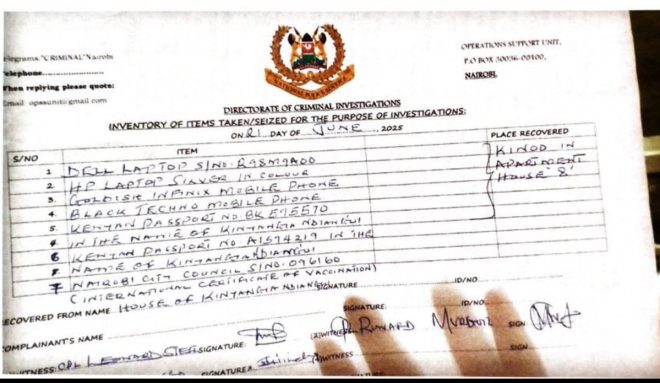 elegrams."CRIMINAL"Nairobi
Telephone
When replying please quote:
Email: opssunit@gmail.com
NATIONAL POLICE SERVICE
OPERATIONS SUPPORT UNIT,
P.O BOX 30036-00100,
NAIROBI.
DIRECTORATE OF CRIMINAL INVESTIGATIONS
INVENTORY OF ITEMS TAKEN/SEIZED FOR THE PURPOSE OF INVESTIGATIONS:
ON 21 DAY OF JUNE, 2025
S/NO ITEM PLACE RECOVERED
1 DELL LAPTOP S/NO.
2 HP LAPTOP SILVER IN COLOUR
3 GOLDISH INFINIX MOBILE PHONE
4. BLACK TECHNO MOBILE PHONE
5. KENYAN PASSPORT NO
6 IN THE NAME OF KINYANGIA NDIANGUI
6 KENYAN PASSPORT NO A1574219 IN THE
7 NAME OF KINYANGIA NDIANGUI
8. NAIROBI CITY COUNCIL S/NO. 096160
7 (INTERNATIONAL CERTIFICATE OF VACCINATION)
KINOO IN
APARTMENT
HOUSE '8'
RECOVERED FROM NAME HOUSE OF KINYANGIA NDIANGUI SIGNATURE ID/NO
COMPLAINANT'S NAME SIGNATURE. ID/NO.
WITNESS: CPL LEONARD SIGNATURE: (2)WITNESS SIGN
WITNESS SIGNATURE (2)WITNESS SIGN